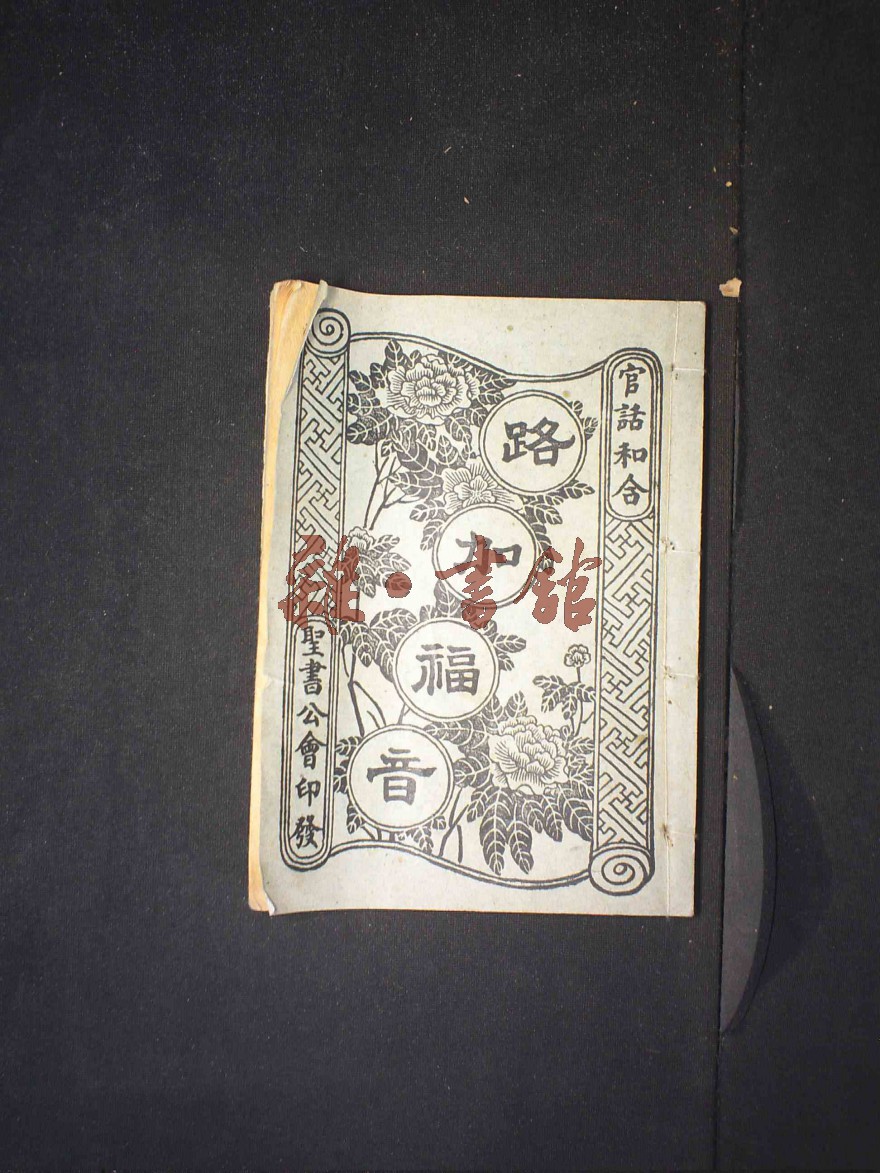 官話和合
路加福音
聖書公會印發
雜·書館